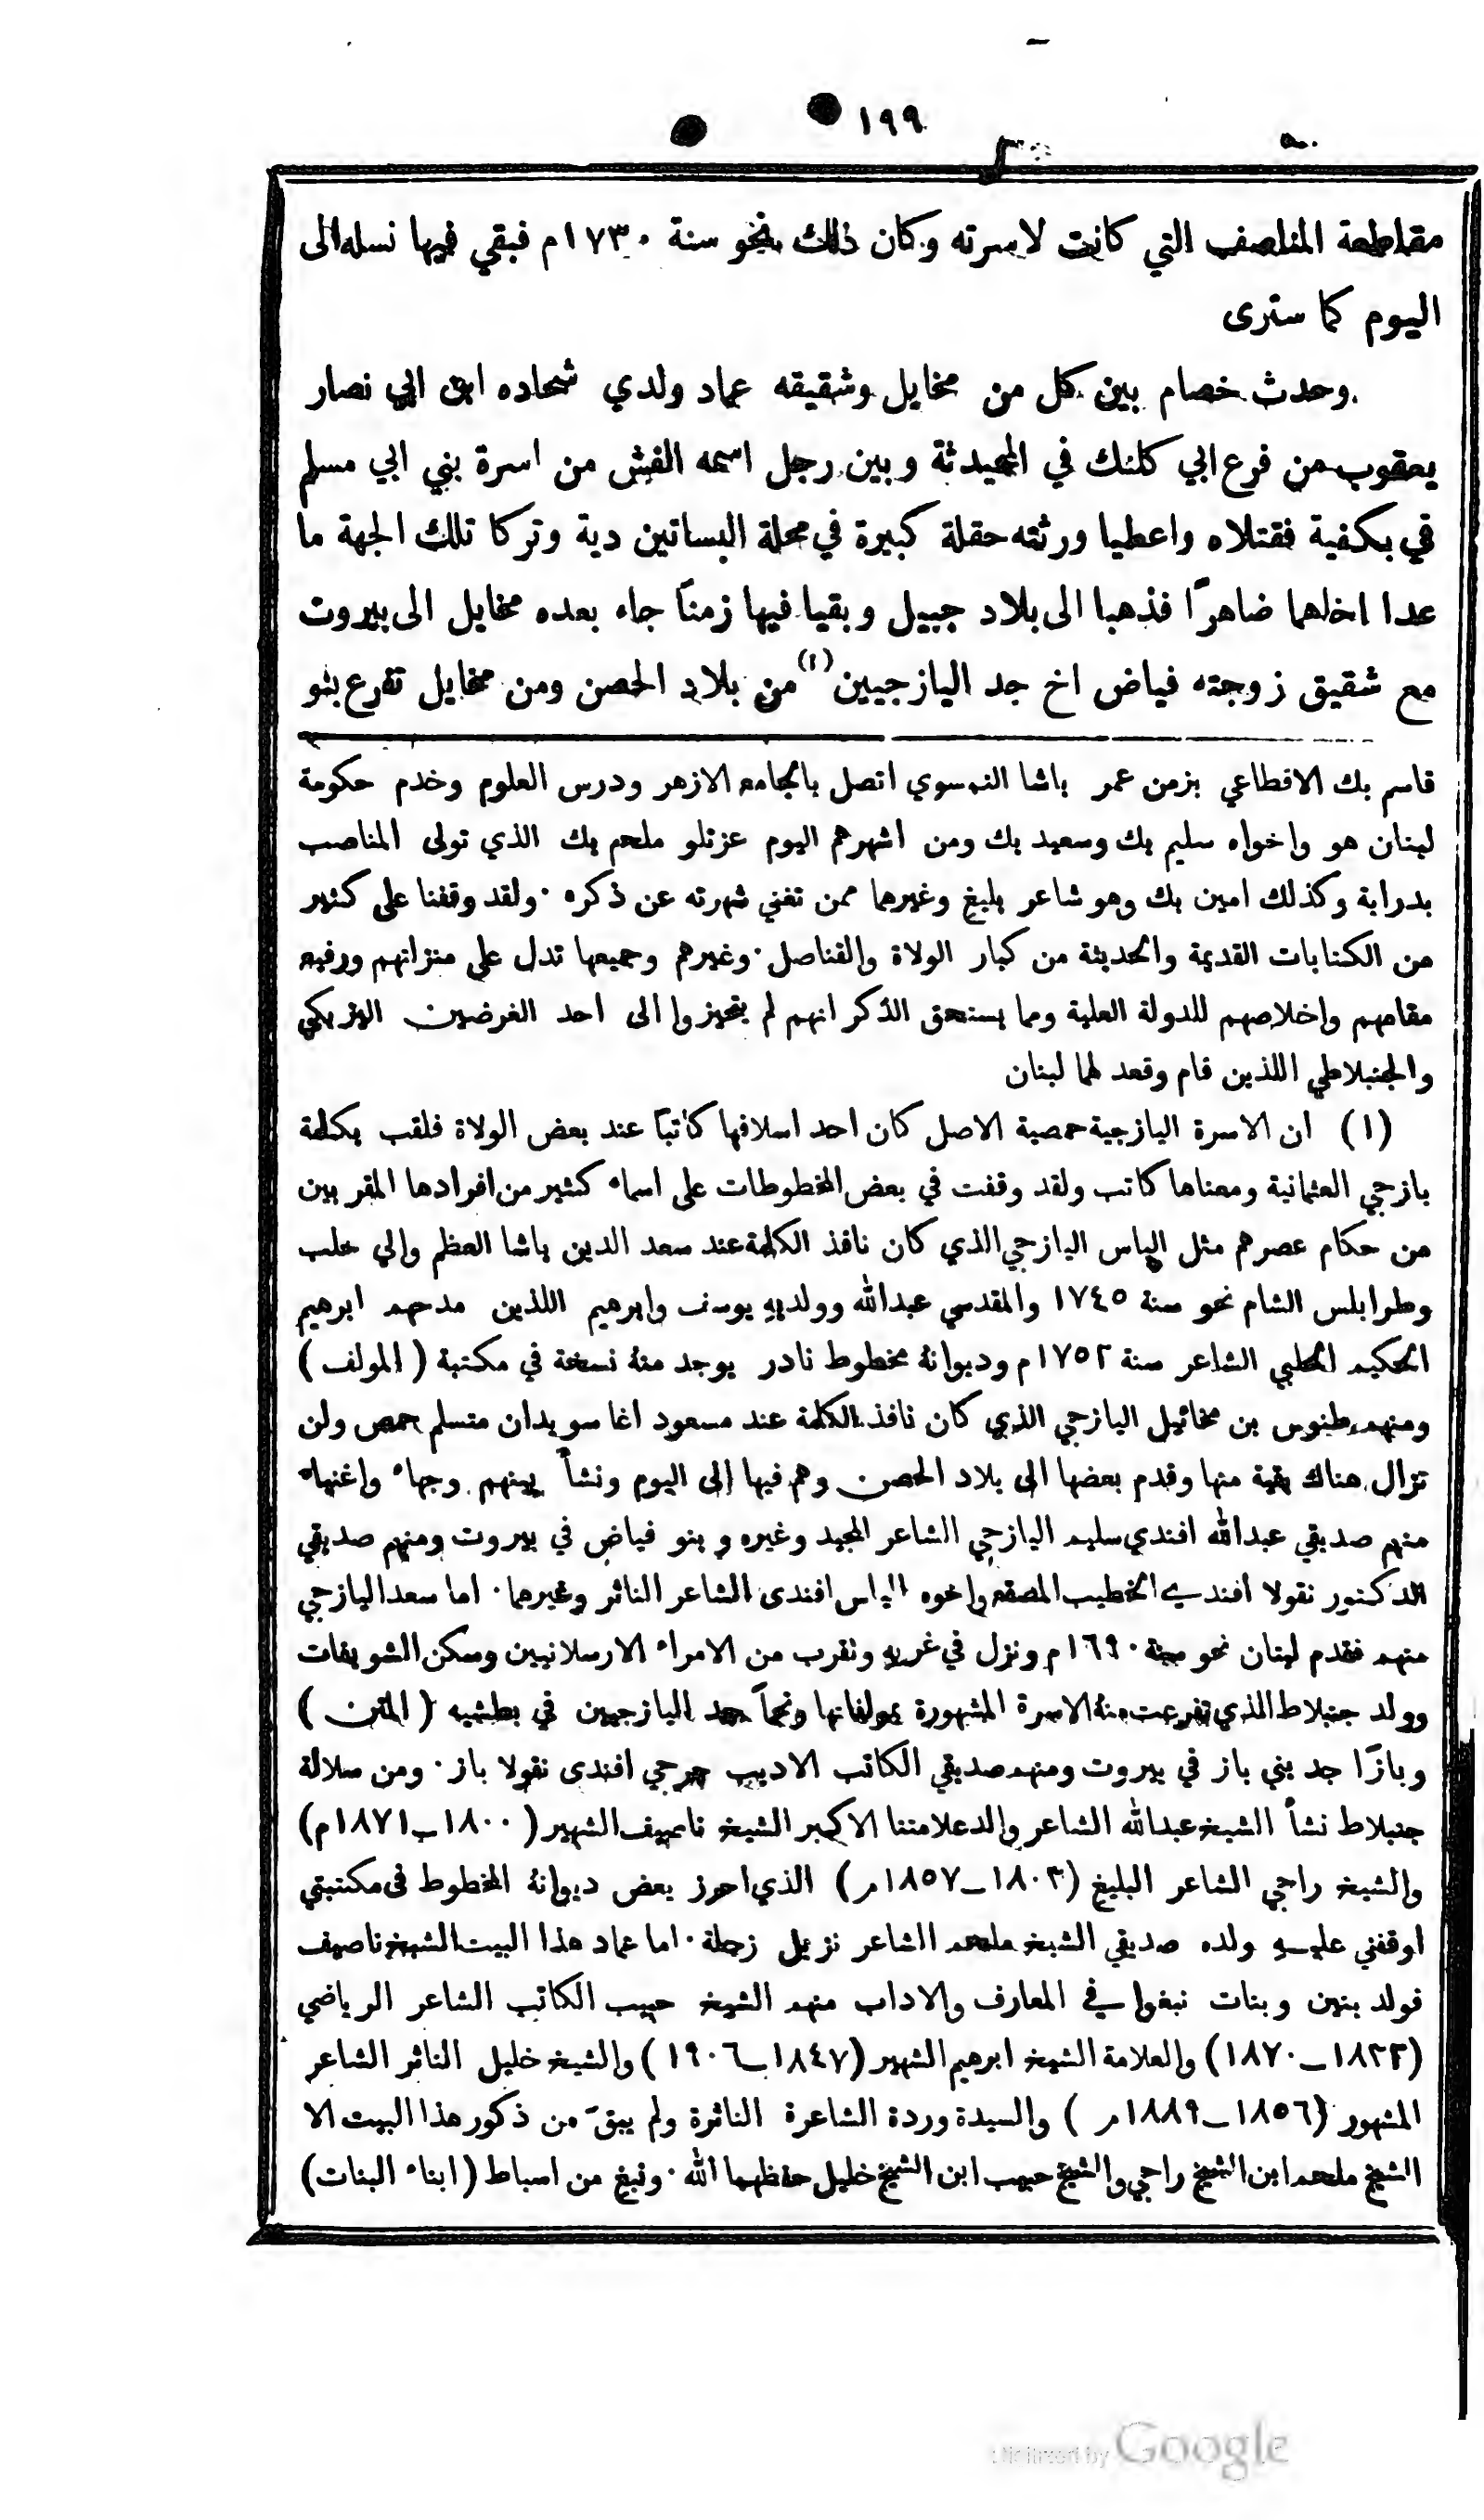 ١٩٩
مقاطعة المناصف التي كانت لاسرته وكان ذلك بنحو سنة ١٧٣٠م فبقي فيها نسله الى
اليوم كما سترى
وحدث خصام بين كل من مخايل وشقيقه عماد ولدي شحاده ابن ابي نصار
يعقوب من فرع ابي كلنك في المحيدثة وبين رجل اسمه الفش من اسرة بني ابي مسلم
في بكفية فقتلاه واعطيا ورثته حقلة كبيرة في محلة البساتين دية وتركا تلك الجهة ما
عدا اخاهما ضاهرًا فذهبا الى بلاد جبيل وبقيا فيها زمنًا جاء بعده مخايل الى بيروت
مع شقيق زوجته فياض اخ جد اليازجيين (١) من بلاد الحصن ومن مخايل تفرع بنو
قاسم بك الاقطاعي بزمن عمر باشا النمسوي اتصل بالجامع الازهر ودرس العلوم وخدم حكومة
لبنان هو واخواه سليم بك وسعيد بك ومن اشهرهم اليوم عزتلو ملحم بك الذي تولى المناصب
بدراية وكذلك امين بك وهو شاعر بليغ وغيرهما ممن تغني شهرته عن ذكره · ولقد وقفنا على كثير
من الكتابات القديمة والحديثة من كبار الولاة والقناصل · وغيرهم وجميعها تدل على منزلتهم ورفيع
مقامهم واخلاصهم للدولة العلية ومما يستحق الذكر انهم لم يتحيزوا الى احد الغرضين اليزبكي
والجنبلاطي اللذين قام وقعد لهما لبنان
(١) ان الاسرة اليازجية حمصية الاصل كان احد اسلافها كاتبًا عند بعض الولاة فلقب بكلمة
يازجي العثمانية ومعناها كاتب ولقد وقفت في بعض المخطوطات على اسماء كثير من افرادها المقربين
من حكام عصرهم مثل الياس اليازجي الذي كان نافذ الكلمة عند سعد الدين باشا العظم والي حلب
وطرابلس الشام نحو سنة ١٧٤٥ والمقدسي عبدالله وولديه يوسف وابرهيم اللذين مدحهم ابرهيم
الحكيم الحلبي الشاعر سنة ١٧٥٢م وديوانهُ مخطوط نادر يوجد منهُ نسخة في مكتبة (المولف)
ومنهم طنوس بن مخائيل اليازجي الذي كان نافذ الكلمة عند مسعود اغا سويدان متسلم حمص ولن
تزال هناك بقية منها وقدم بعضها الى بلاد الحصن وهم فيها الى اليوم ونشأ بينهم وجهاء واغنياء
منهم صديقي عبدالله افندي سليم اليازجي الشاعر المجيد وغيره وبنو فياض في بيروت ومنهم صديقي
الدكتور نقولا افندي الخطيب المصقع واخوه الياس افندي الشاعر الناثر وغيرهما · اما سعد اليازجي
منهم فقدم لبنان نحو سنة ١٦٩٠م ونزل في غربهِ وتقرب من الامراء الارسلانيين وسكن الشويفات
وولد جنبلاط الذي تفرعت منهُ الاسرة المشهورة بمولفاتها ونجماً جد اليازجيين في بطشيه (المتن)
وبازًا جد بني باز في بيروت ومنهم صديقي الكاتب الاديب جرجي افندي نقولا باز · ومن سلالة
جنبلاط نشأ الشيخ عبدالله الشاعر والد علامتنا الاكبر الشيخ ناصيف الشهير (١٨٠٠ـ١٨٧١م)
والشيخ راجي الشاعر البليغ (١٨٠٣ـ١٨٥٧م) الذي احرز بعض ديوانهُ المخطوط في مكتبتي
اوقفني عليهِ ولده صديقي الشيخ ملحم الشاعر نزيل زحلة · اما عماد هذا البيت الشيخ ناصيف
فولد بنين وبنات نبغوا في المعارف والاداب منهم الشيخ حبيب الكاتب الشاعر الرياضي
(١٨٣٣ـ١٨٧٠) والعلامة الشيخ ابرهيم الشهير (١٨٤٧ـ١٩٠٦) والشيخ خليل الناثر الشاعر
المشهور (١٨٥٦ـ١٨٨٩م) والسيدة وردة الشاعرة الناثرة ولم يبقَ من ذكور هذا البيت الا
الشيخ ملحم ابن الشيخ راجي والشيخ حبيب ابن الشيخ خليل حفظهما الله · ونبغ من اسباط (ابناء البنات)
Digitized by Google